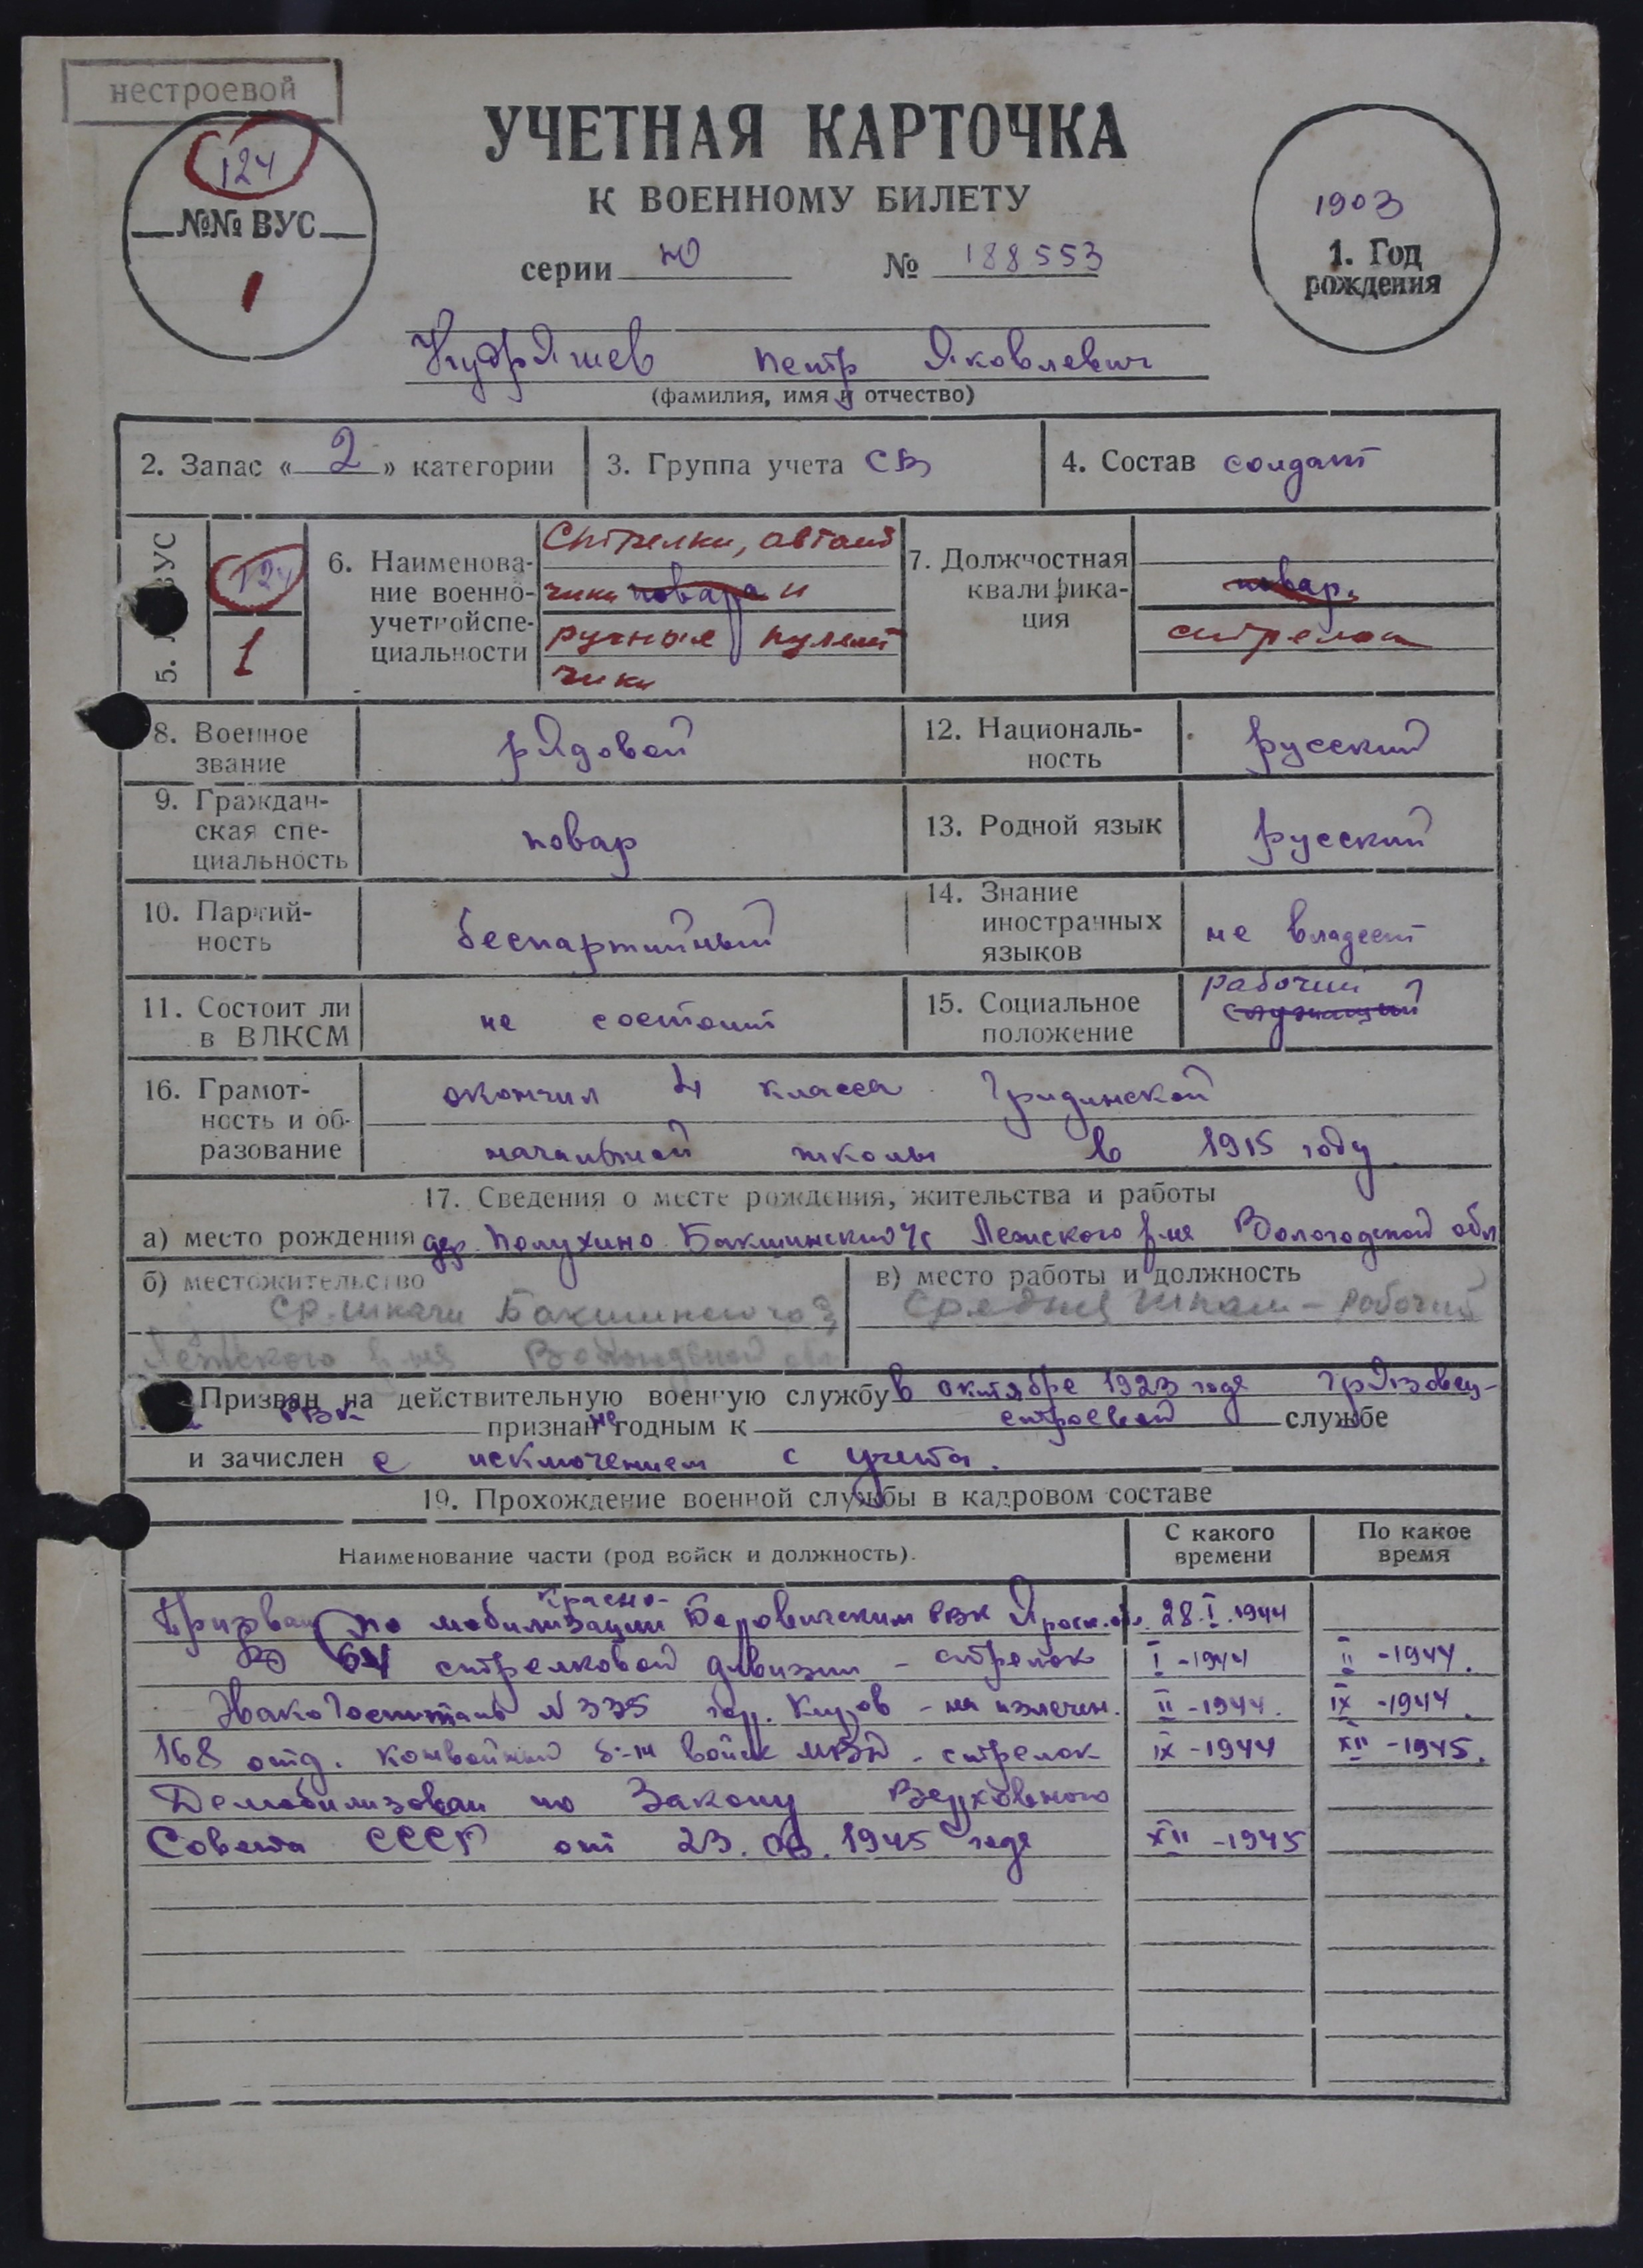 нестроевой
124
№№ ВУС
1
УЧЕТНАЯ КАРТОЧКА
К ВОЕННОМУ БИЛЕТУ
серии Ю № 188553
1903
1. Год
рождения
Кудряшев Петр Яковлевич
(фамилия, имя и отчество)
2. Запас « 2 » категории
3. Группа учета СВ
4. Состав солдат
5. ВУС
124
1
6. Наименова-
ние военно-
учетной спе-
циальности
Стрелки, автомат
чики повара и
ручные пулемет
чики
7. Должностная
квалифика-
ция
повар.
стрелок
8. Военное
звание
рядовой
12. Националь-
ность
русский
9. Граждан-
ская спе-
циальность
повар
13. Родной язык
русский
10. Партий-
ность
беспартийный
14. Знание
иностранных
языков
не владеет
11. Состоит ли
в ВЛКСМ
не состоит
15. Социальное
положение
рабочий
служащий
16. Грамот-
ность и об-
разование
окончил 4 класса Гридинской
начальной школы в 1915 году
17. Сведения о месте рождения, жительства и работы
а) место рождения дер. Полухино Бакшинский с/с Лежского р-на Вологодской обл
б) местожительство
Бакшинского
Лежского р-на Вологодской
в) место работы и должность
рабочий
Призван на действительную военную службу в октябре 1923 года Грязовец-
РВК признан не годным к строевой службе
и зачислен с исключением с учета.
19. Прохождение военной службы в кадровом составе
Наименование части (род войск и должность).
С какого
времени
По какое
время
Красно-
Призван по мобилизации Боровичским РВК Яросл. об. 28.I.1944
64 стрелковой дивизии - стрелок I-1944 II-1944.
Эвакогоспиталь №335 гор. Киров - на излечен. II-1944. IX-1944.
168 отд. конвойный б-н войск МВД - стрелок IX-1944 XII-1945.
Демобилизован по Закону Верховного
Совета СССР от 23.06.1945 года XII-1945